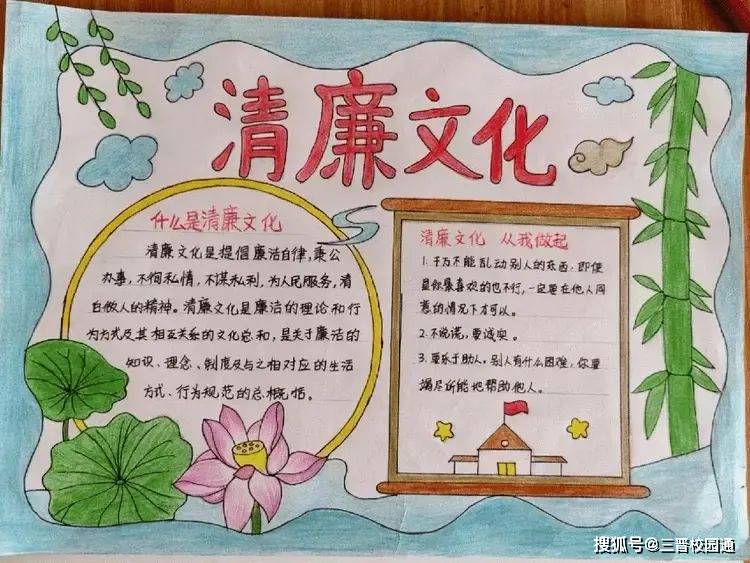 清廉文化
什么是清廉文化
清廉文化是提倡廉洁自律，秉公
办事，不徇私情，不谋私利，为人民服务，清
白做人的精神。清廉文化是廉洁的理论和行
为方式及其相互关系的文化总和，是关于廉洁的
知识、理念、制度及与之相对应的生活
方式、行为规范的总概括。
清廉文化 从我做起
1. 千万不能乱动别人的东西，即使
是你最喜欢的也不行，一定要在他人同
意的情况下才可以。
2. 不说谎，要诚实。
3. 要乐于助人。别人有什么困难，你要
竭尽所能地帮助他人。
搜狐号@三晋校园通